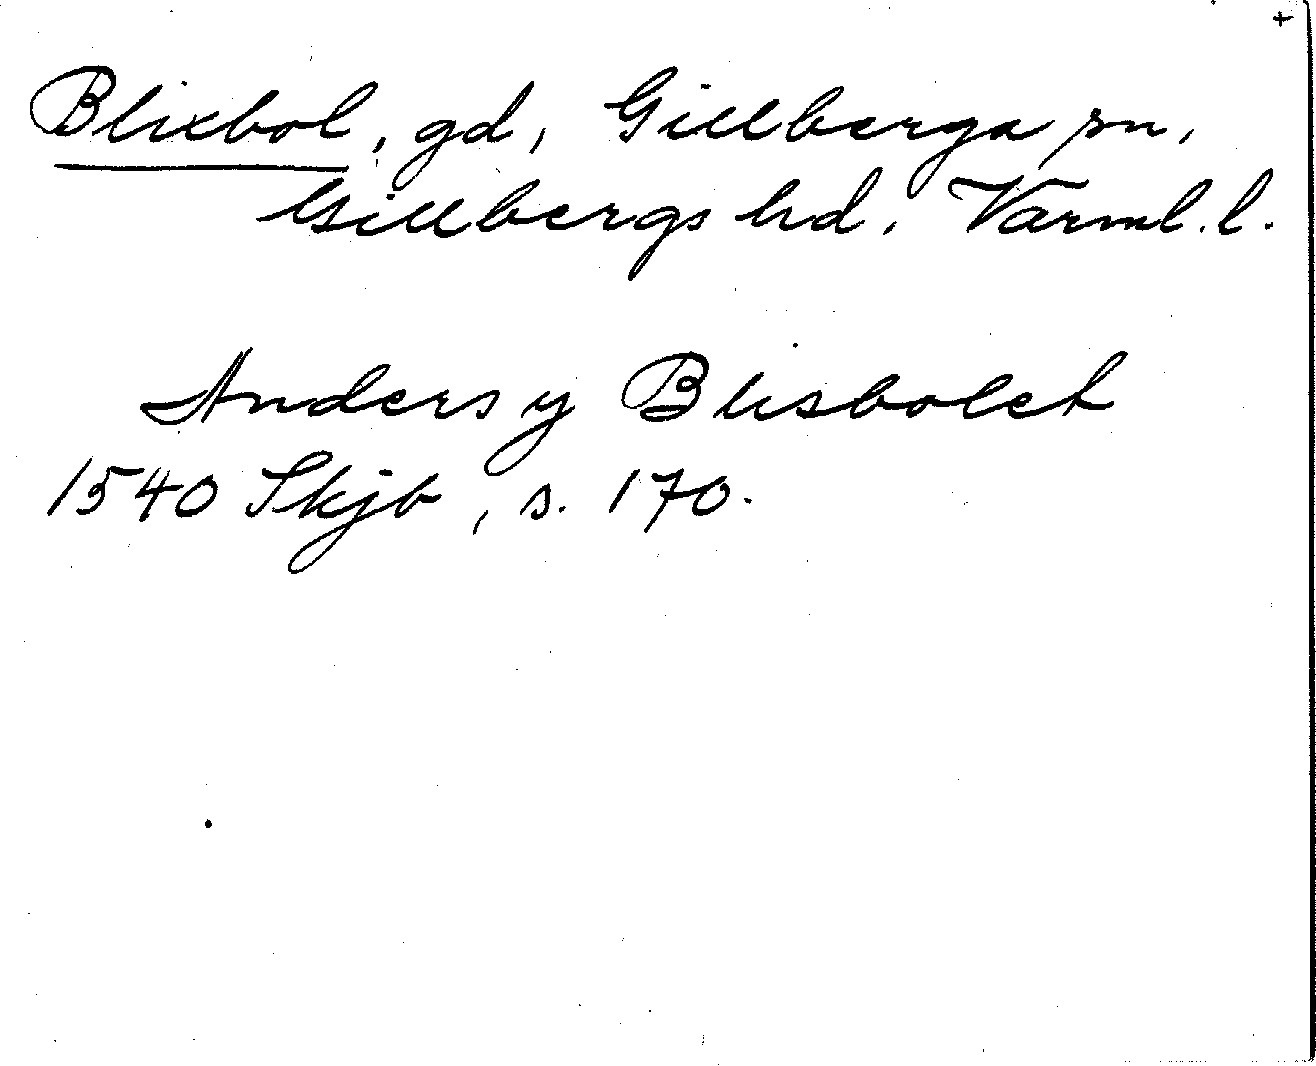 +
Blixbol, gd, Gillberga sn,
Gillbergs hd, Värml. l.
Anders y Blisbolet
1540 Skjb, s. 170.